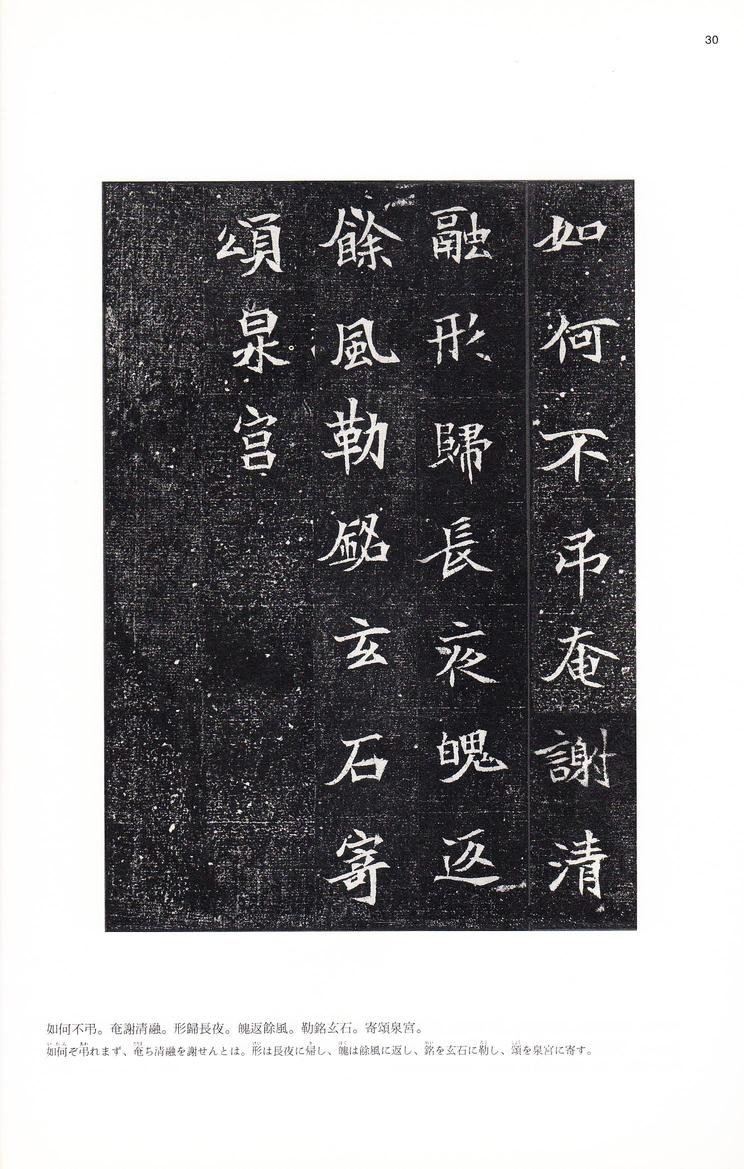 30
如何不弔奄謝清
融形歸長夜魄返
餘風勒銘玄石寄
頌泉宮
如何不弔。奄謝清融。形歸長夜。魄返餘風。勒銘玄石。寄頌泉宮。
如何ぞ弔れまず、奄ち清融を謝せんとは。形は長夜に帰し、魄は餘風に返し、銘を玄石に勒し、頌を泉宮に寄す。